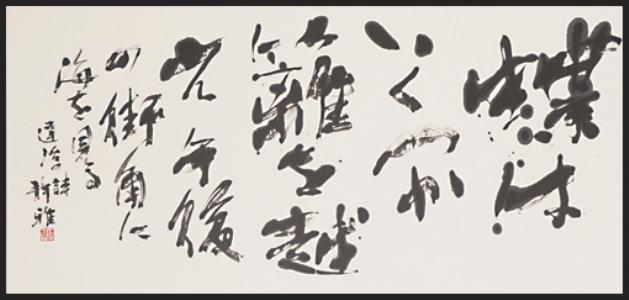 蝶は
いくつか
籬を越
え午後
の街角に
海を見る
達治詩
雅